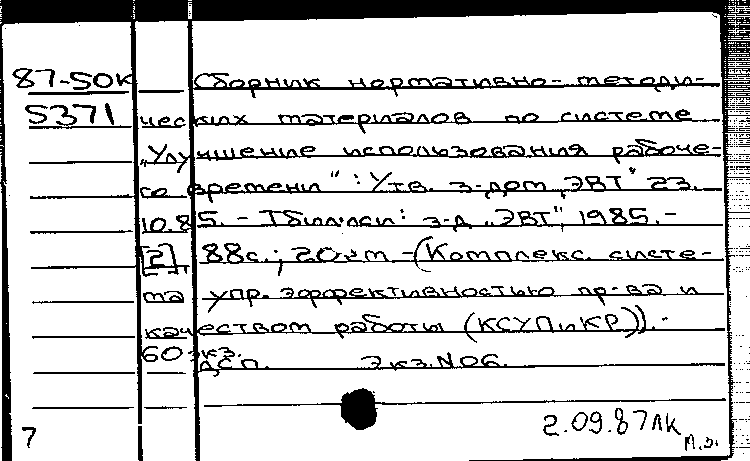 87-50к Сборник нормативно-методи-
5371 ческих материалов по системе
„Улучшение использования рабоче-
го времени": Утв. з-дом „ЭВТ" 23.
10.85. - Тбилиси: з-д „ЭВТ", 1985. -
[2], 88с.; 20см - (Комплекс. систе-
ма упр. эффективностью пр-ва и
качеством работы (КСУПиКР)). -
60 экз.
ДСП. Экз.N06.
2.09.87 ЛК
7